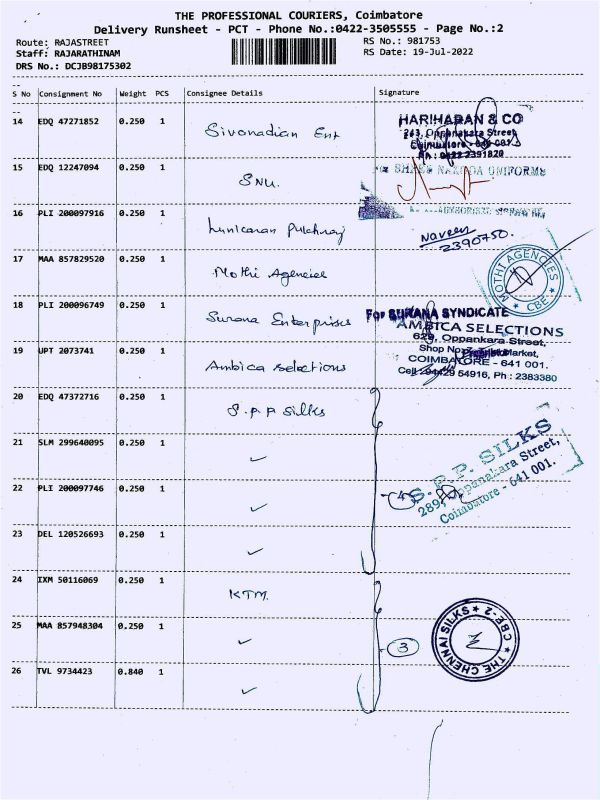 THE PROFESSIONAL COURIERS, Coimbatore
Delivery Runsheet - PCT - Phone No.:0422-3505555 - Page No.:2
Route: RAJASTREET
RS No.: 981753
Staff: RAJARATHINAM
RS Date: 19-Jul-2022
DRS No.: DCJB98175302
S No Consignment No Weight PCS Consignee Details Signature
14 EDQ 47271852 0.250 1 Sivanadian Ent
HARIHARAN & CO
243, Oppanakara Street
Coimbatore
Ph : 0422 2391820
15 EDQ 12247094 0.250 1 SNU.
UNIFORMS
16 PLI 200097916 0.250 1
Naveen
2390750.
17 MAA 857829520 0.250 1 Mothi Agencies
MOTHI AGENCIES
★ CBE ★
18 PLI 200096749 0.250 1 Surana Enterprises
For SURANA SYNDICATE
19 UPT 2073741 0.250 1 Ambica selections
AMBICA SELECTIONS
629, Oppankara Street,
Shop No: Market,
COIMBATORE - 641 001.
Cell : 94429 54916, Ph : 2383380
20 EDQ 47372716 0.250 1 S.P.P Silks
21 SLM 299640095 0.250 1 ✓
22 PLI 200097746 0.250 1 ✓
4
S.P.P. SILKS
289, Oppanakara Street,
Coimbatore - 641 001.
23 DEL 120526693 0.250 1 ✓
24 IXM 50116069 0.250 1 KTM.
25 MAA 857948304 0.250 1 ✓
3
★ THE CHENNAI SILKS ★ CBE-2
26 TVL 9734423 0.840 1 ✓